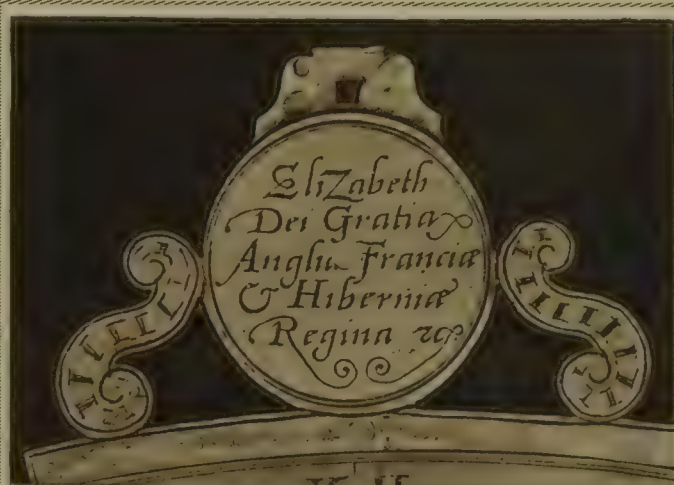 EliZabeth
Dei Gratia
Angliæ Franciæ
& Hiberniæ
Regina &c?